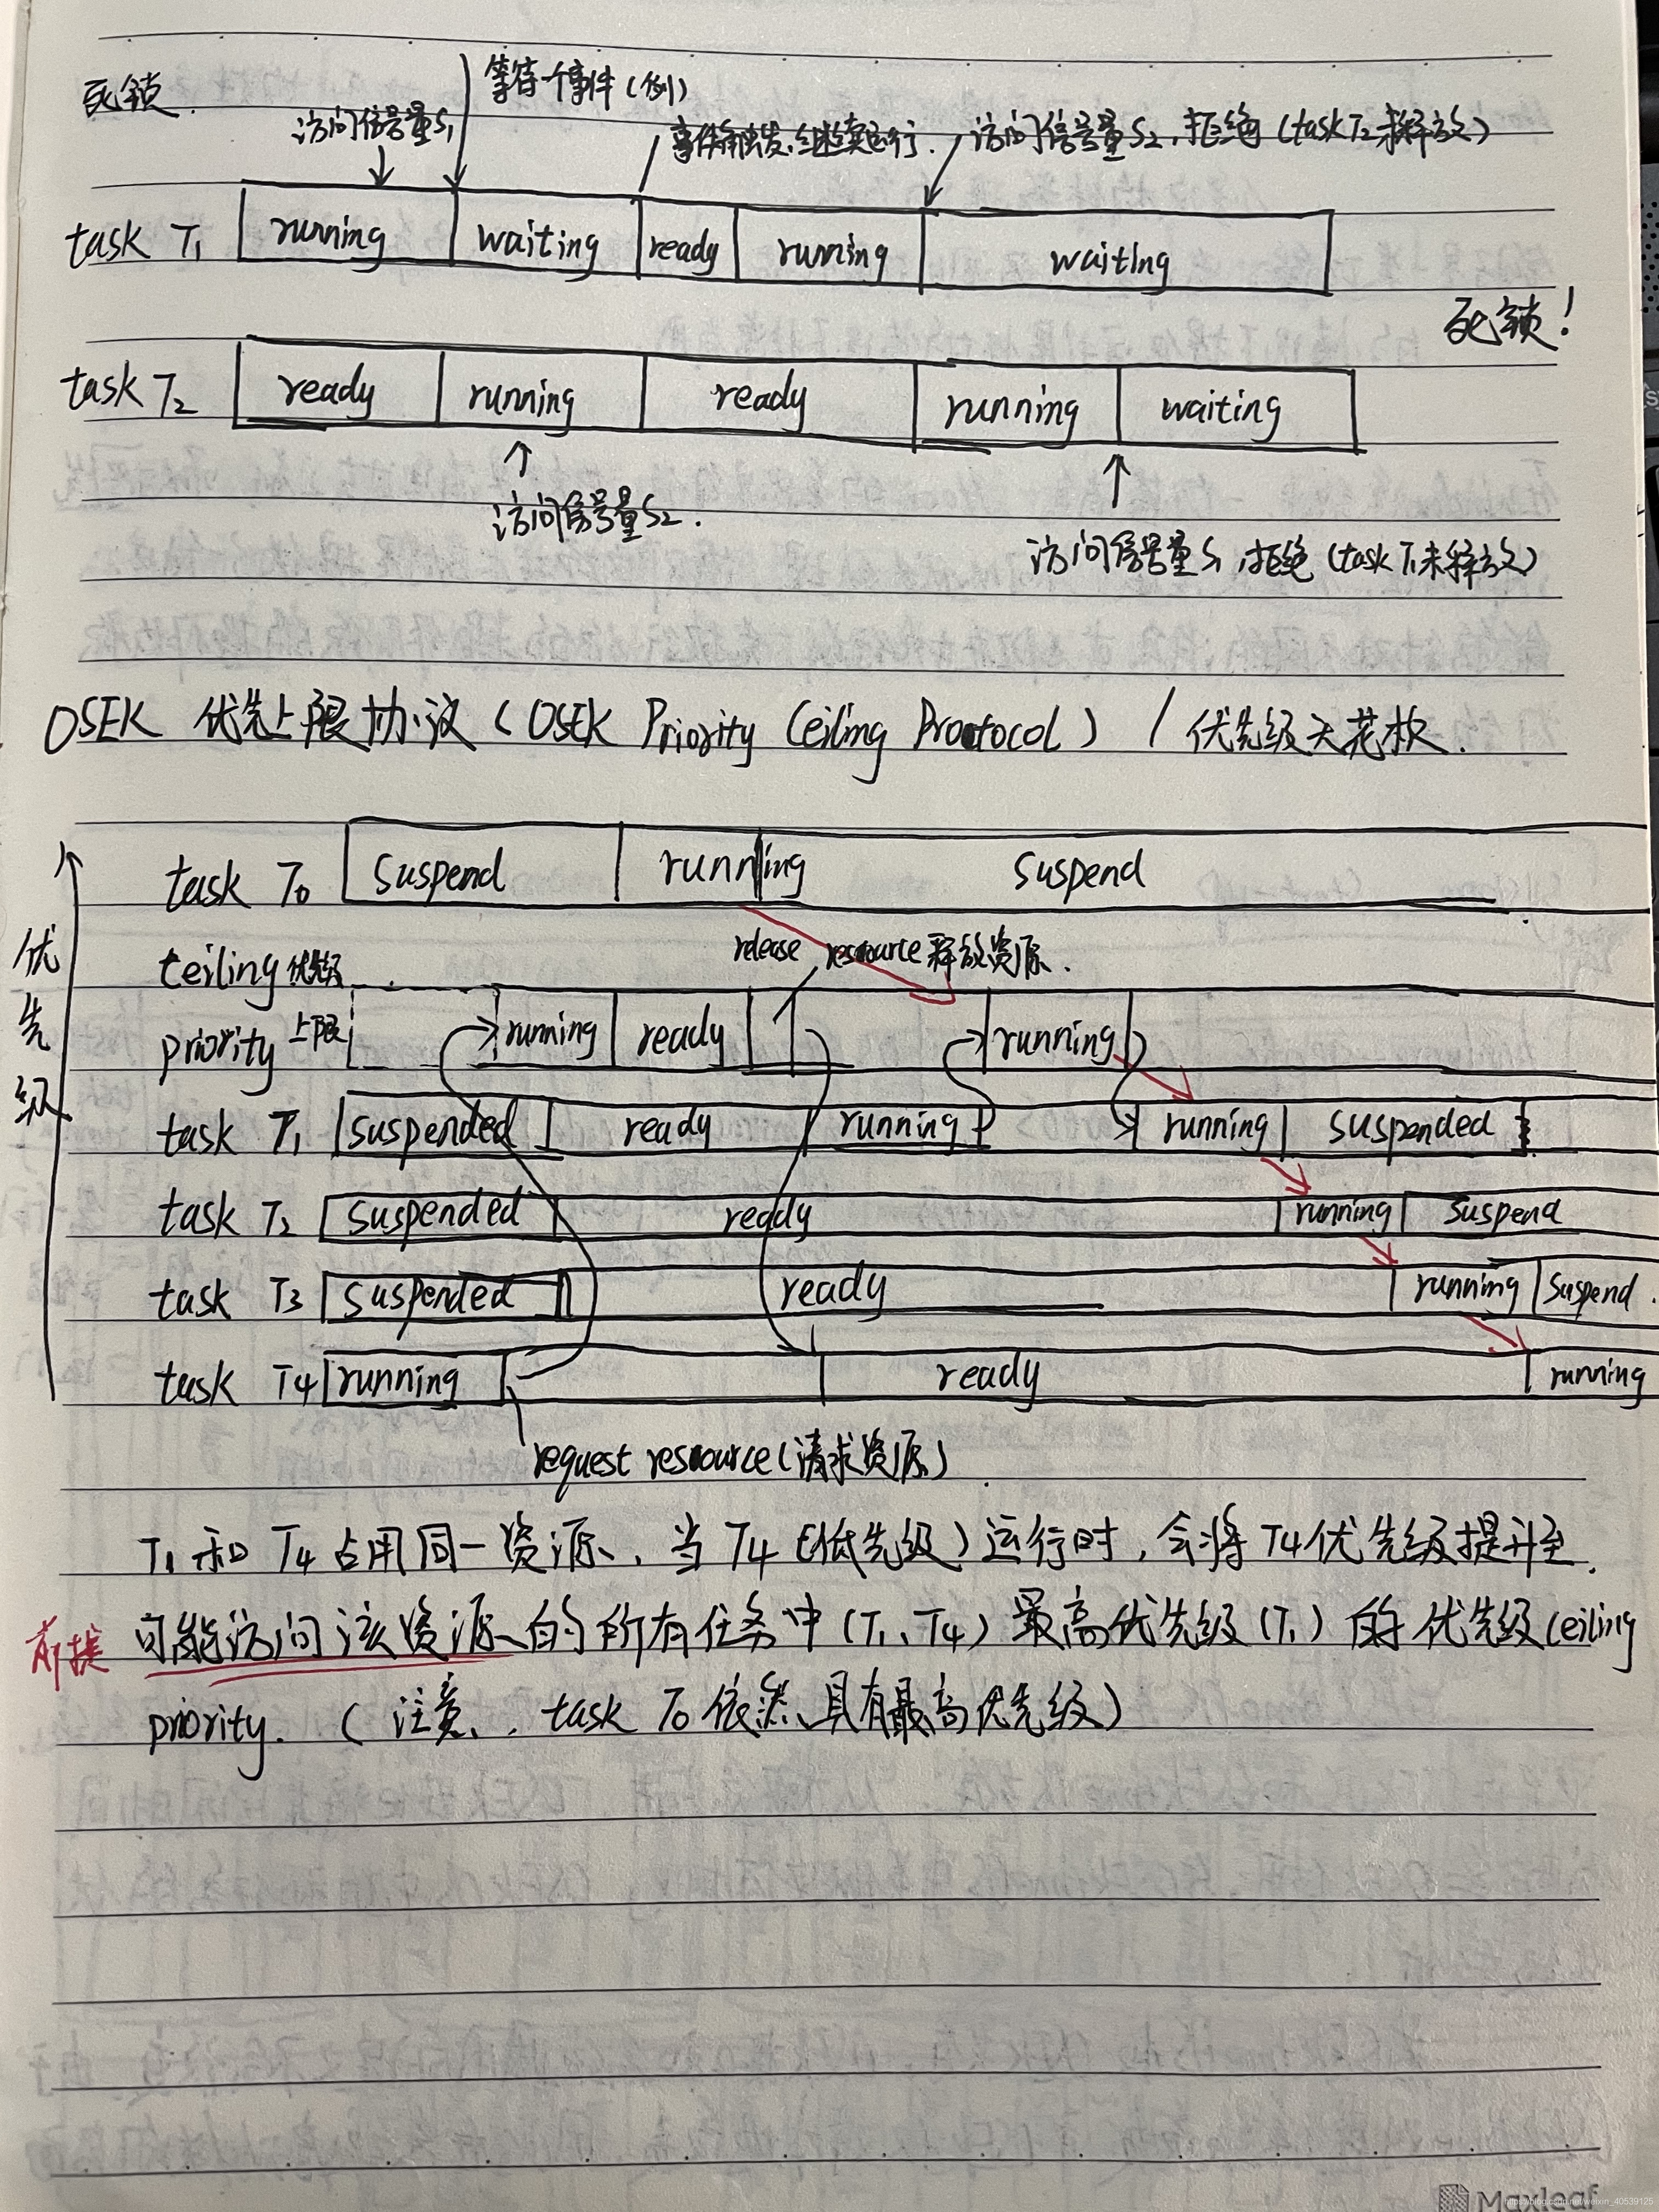 死锁.
等待一个事件(例)
访问信号量S1
事件触发,继续运行.
访问信号量S2,拒绝(task T2未释放)
task T1 running waiting ready running waiting
死锁!
task T2 ready running ready running waiting
访问信号量S2.
访问信号量S1,拒绝(task T1未释放)
OSEK 优先上限协议(OSEK Priority Ceiling Prootocol) / 优先级天花板.
优先级
task T0 suspend running suspend
release resource 释放资源.
ceiling 优先级
priority 上限 running ready running
task T1 suspended ready running running suspended
task T2 suspended ready running suspend
task T3 suspended ready running suspend.
task T4 running ready running
request resource(请求资源)
T1 和 T4 占用同一资源、当 T4(低优先级)运行时,会将 T4优先级提升至
前提 可能访问该资源的所有任务中(T1、T4)最高优先级(T1)的优先级 Ceiling
priority. (注意、, task T0 依然具有最高优先级)
Maxleaf
https://blog.csdn.net/weixin_40539125